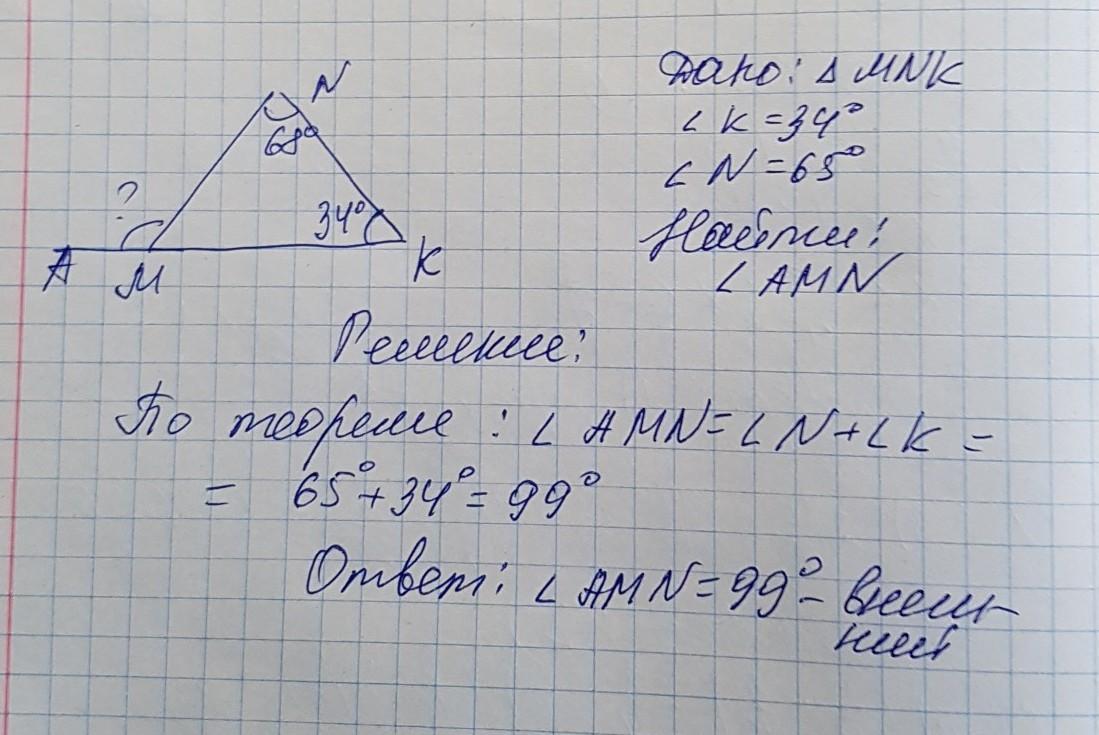 N
68°
?
34°
А
М
К
Дано: Δ MNK
∠ K = 34°
∠ N = 65°
Найти:
∠ AMN
Решение:
По теореме : ∠ AMN = ∠ N + ∠ K =
= 65° + 34° = 99°
Ответ: ∠ AMN = 99° – внеш-
ний